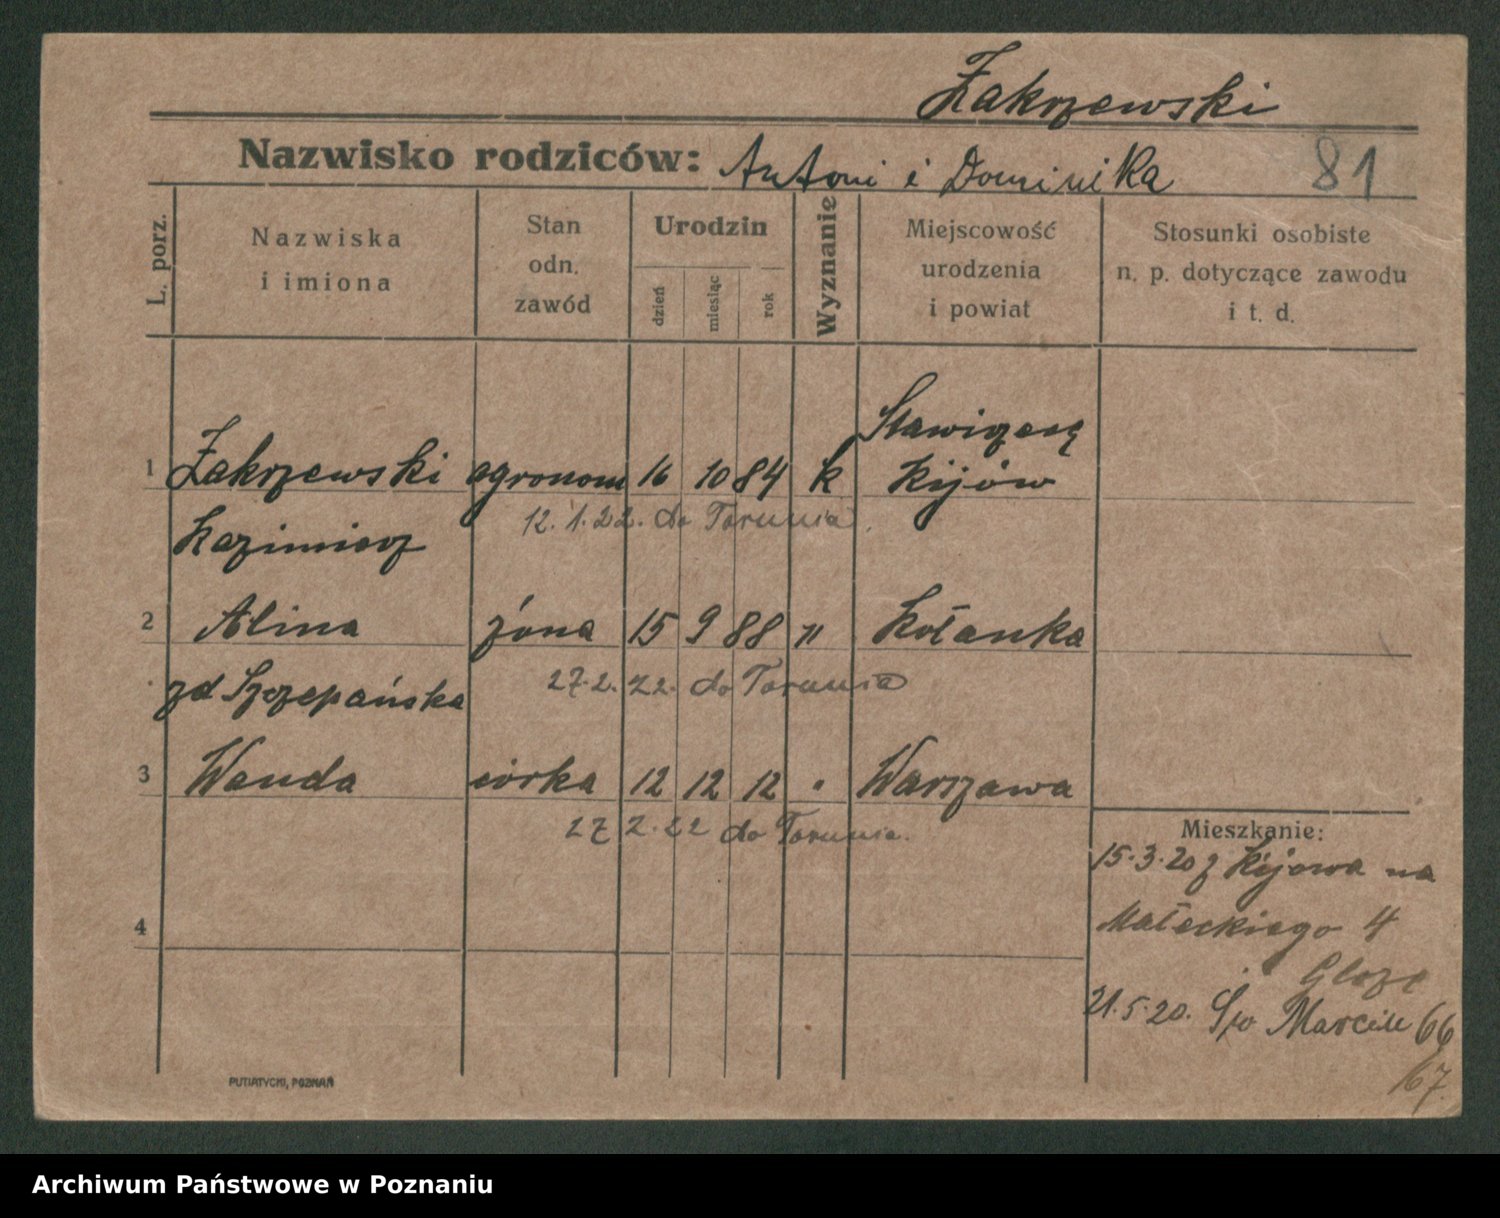 Zakrzewski
Nazwisko rodziców: Antoni i Dominika
81
L. porz.
Nazwiska
i imiona
Stan
odn.
zawód
Urodzin
dzień
miesiąc
rok
Wyznanie
Miejscowość
urodzenia
i powiat
Stosunki osobiste
n. p. dotyczące zawodu
i t. d.
Kijów
1 Zakrzewski agronom 16 10 84 k
12. 1. 22. do Torunia.
Kazimierz
2 Alina żona 15 9 88 " Kołanka
27. 2. 22. do Torunia
zd Szczepańska
3 Wanda córka 12 12 12 " Warszawa
27 2. 22 do Torunia.
4
Mieszkanie:
15.3.20 z Kijowa na
Małeckiego 4
21.5.20. Św Marcin 66
67
PUTIATYCKI, POZNAŃ
Archiwum Państwowe w Poznaniu